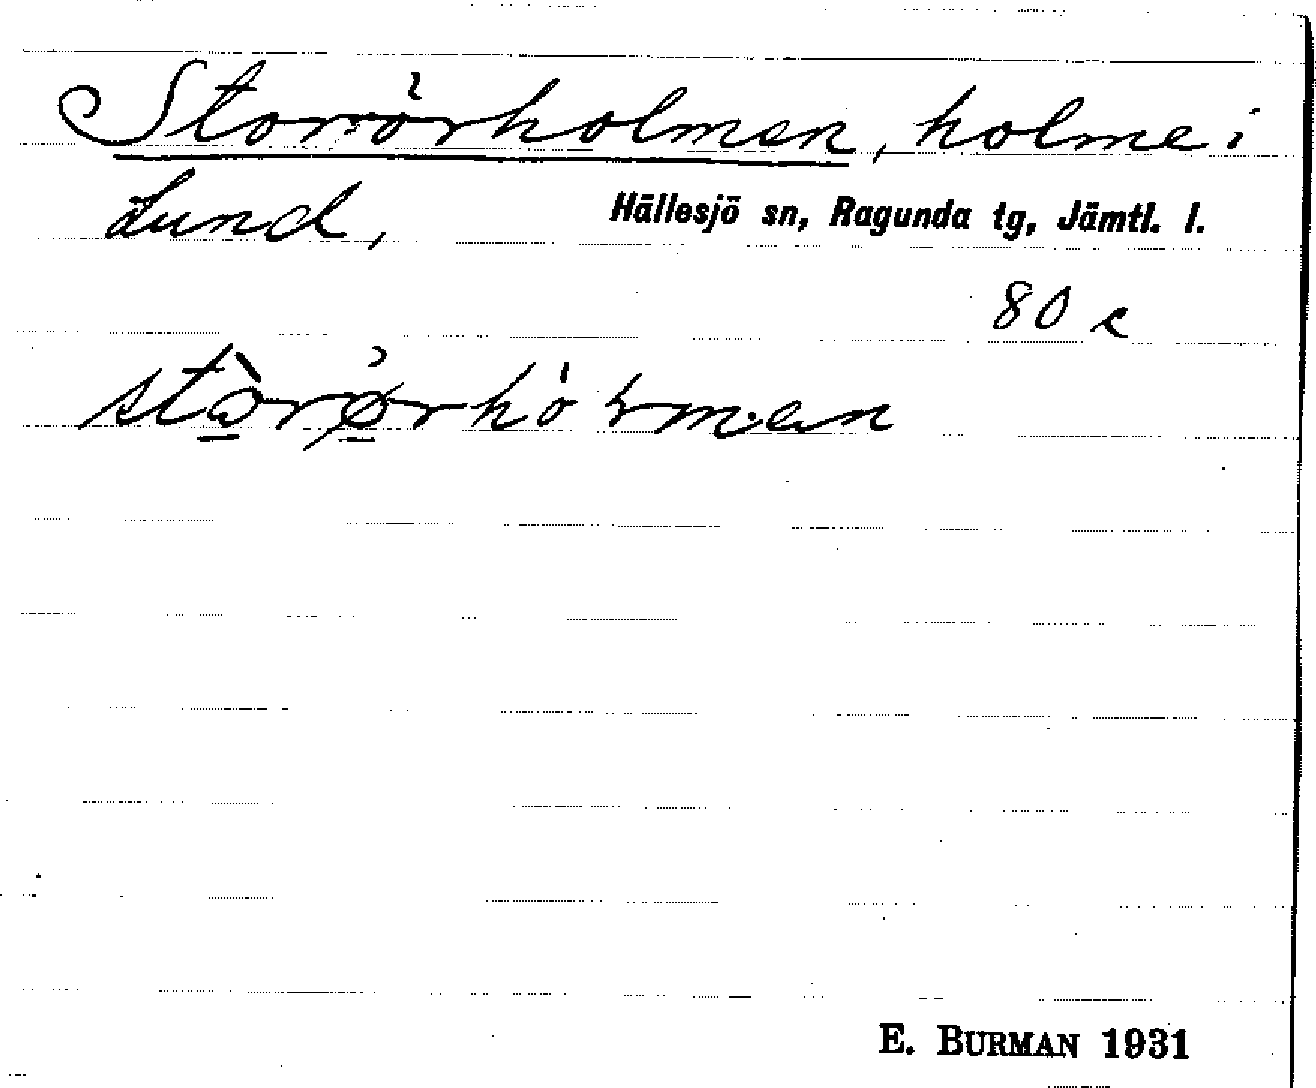 Storörholmen, holme i
Lund,
Hällesjö sn, Ragunda tg, Jämtl. l.
80 c
E. BURMAN 1931